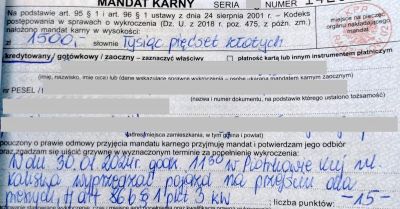 MANDAT KARNY SERIA
Na podstawie art. 95 § 1 i art. 96 § 1 ustawy z dnia 24 sierpnia 2001 r. – Kodeks
postępowania w sprawach o wykroczenia (Dz. U. z 2018 r. poz. 475, z późn. zm.)
nałożono mandat karny w wysokości:
miejsce na pieczęć
organu nakładającego
mandat
zł 1500,- słownie Tysiąc pięćset złotych
kredytowany / gotówkowy / zaoczny – zaznaczyć właściwy płatność kartą lub innym instrumentem płatniczym
nr PESEL /
nazwa i numer dokumentu, na podstawie którego ustalono tożsamość)
(adres/miejsce zamieszkania, w tym gmina i powiat)
pouczony o prawie odmowy przyjęcia mandatu karnego przyjmuję mandat i potwierdzam jego odbiór
oraz zgadzam się uiścić grzywnę w wyznaczonym terminie za popełnienie wykroczenia:
W dniu 30.01.2024 godz. 1130 w Piotrkowie Kuj ul.
kaliska wyprzedzał pojazd na przejściu dla
pieszych, tj. art 86b § 1 pkt 3 kw
liczba punktów: -15-